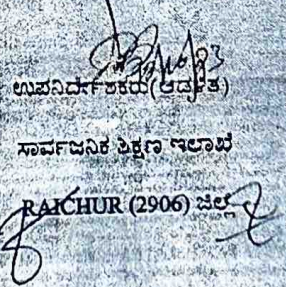 ಉಪನಿರ್ದೇಶಕರು(ಆಡಳಿತ)
ಸಾರ್ವಜನಿಕ ಶಿಕ್ಷಣ ಇಲಾಖೆ
RAICHUR (2906) ಜಿಲ್ಲೆ